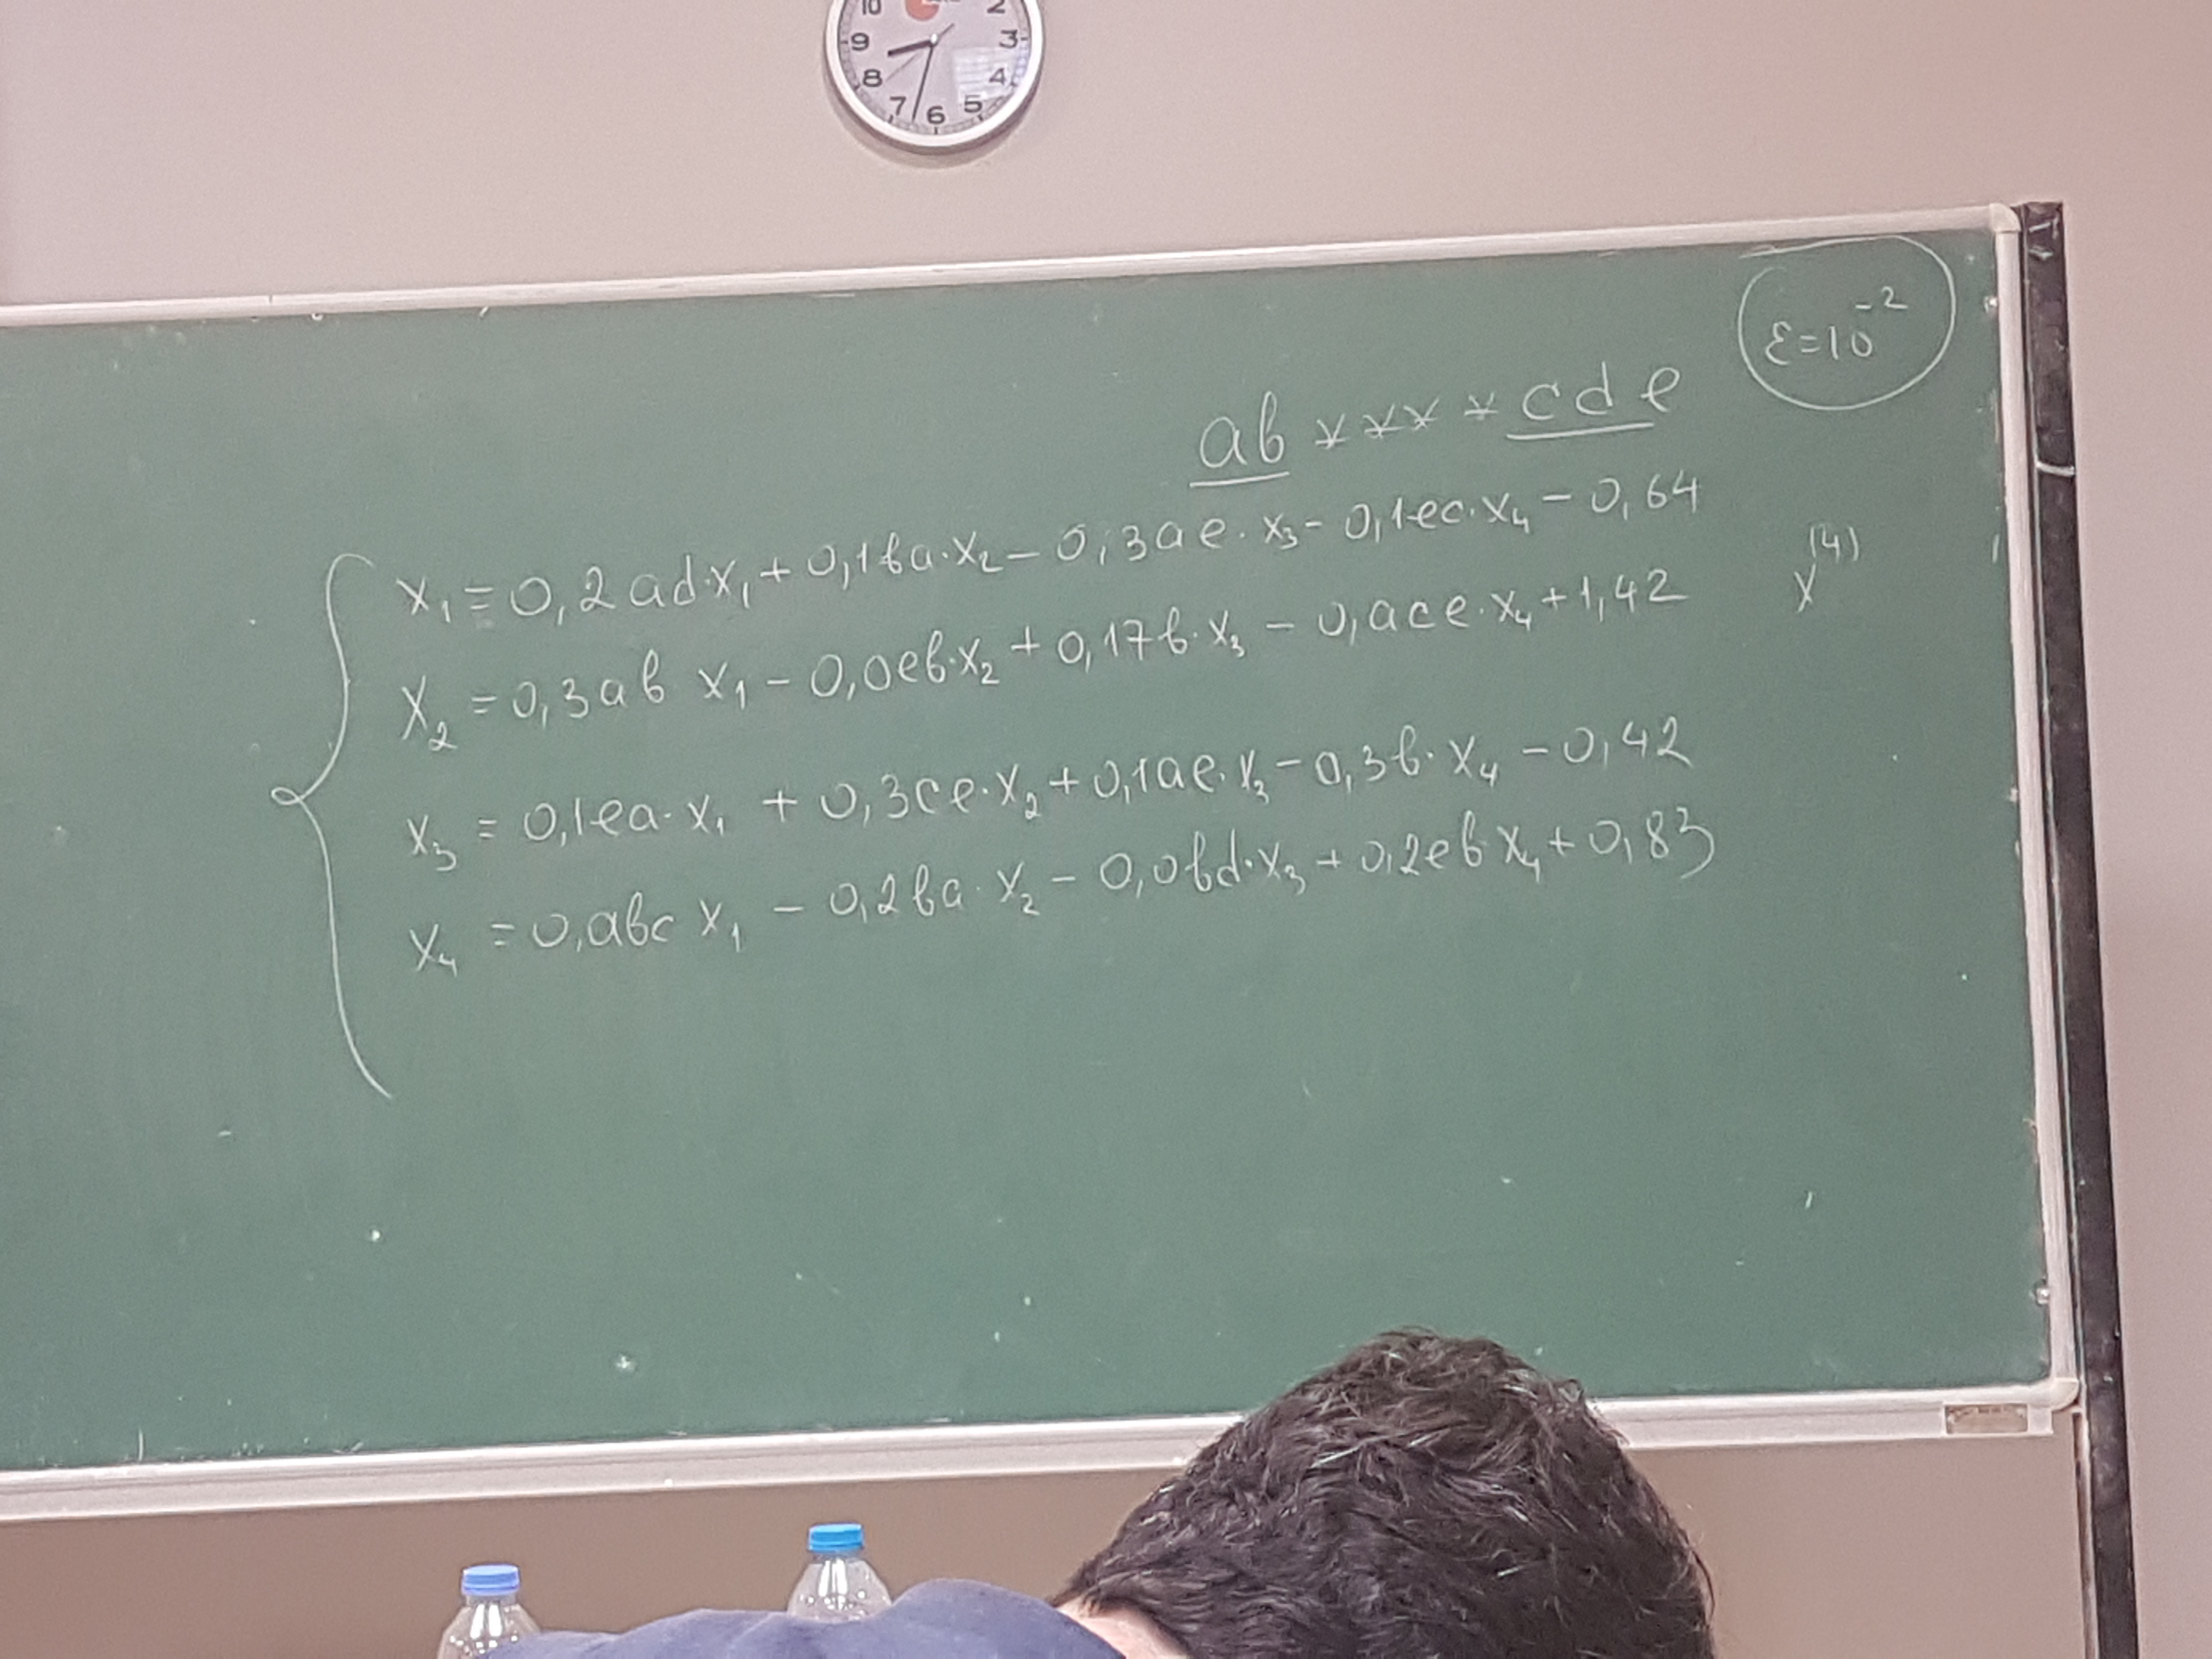 ab * * * * cde
ε=10⁻²
x₁ = 0,2ad·x₁ + 0,1ba·x₂ - 0,3ae·x₃ - 0,1ec·x₄ - 0,64
x₂ = 0,3ab x₁ - 0,0eb·x₂ + 0,17b·x₃ - 0,ace·x₄ + 1,42
x⁽⁴⁾
x₃ = 0,1ea·x₁ + 0,3ce·x₂ + 0,1ae·x₃ - 0,3b·x₄ - 0,42
x₄ = 0,abc x₁ - 0,2ba·x₂ - 0,0bd·x₃ + 0,2eb·x₄ + 0,83
10
9
8
7
6
5
4
3
2